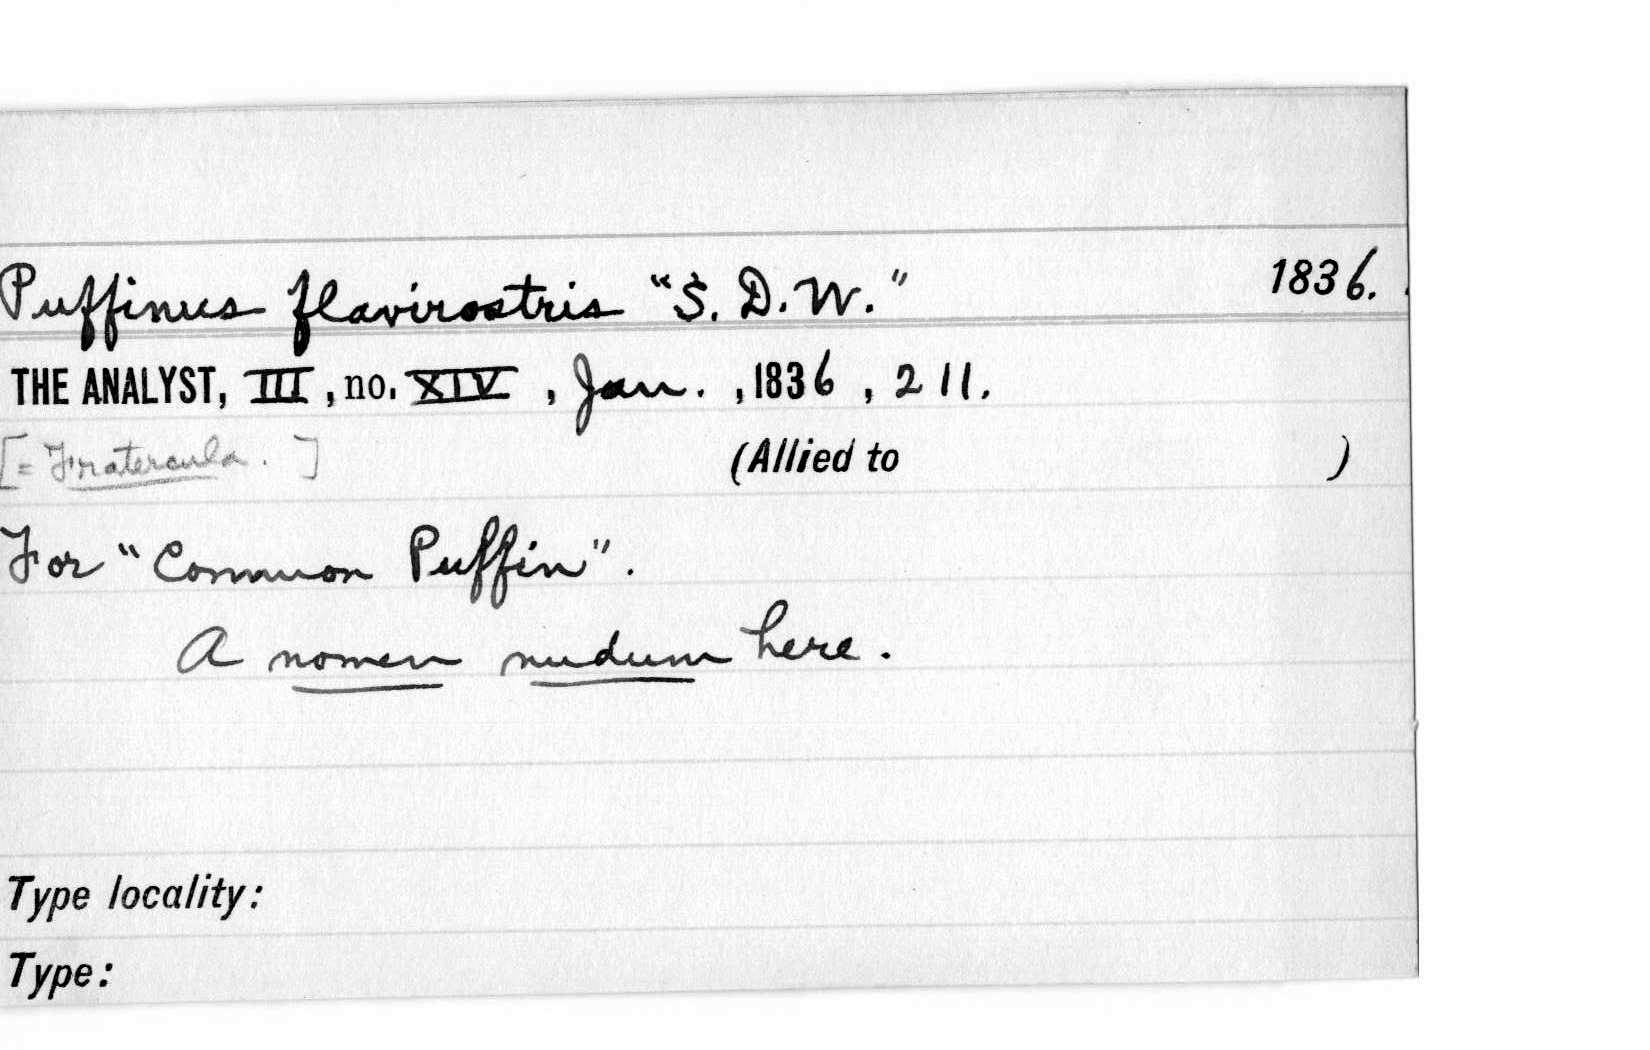 Puffinus flavirostris "S. D. W." 1836.
THE ANALYST, III, no. XIV, Jan., 1836, 211.
[= Fratercula. ] (Allied to )
For "Common Puffin".
A nomen nudum here.
Type locality:
Type: